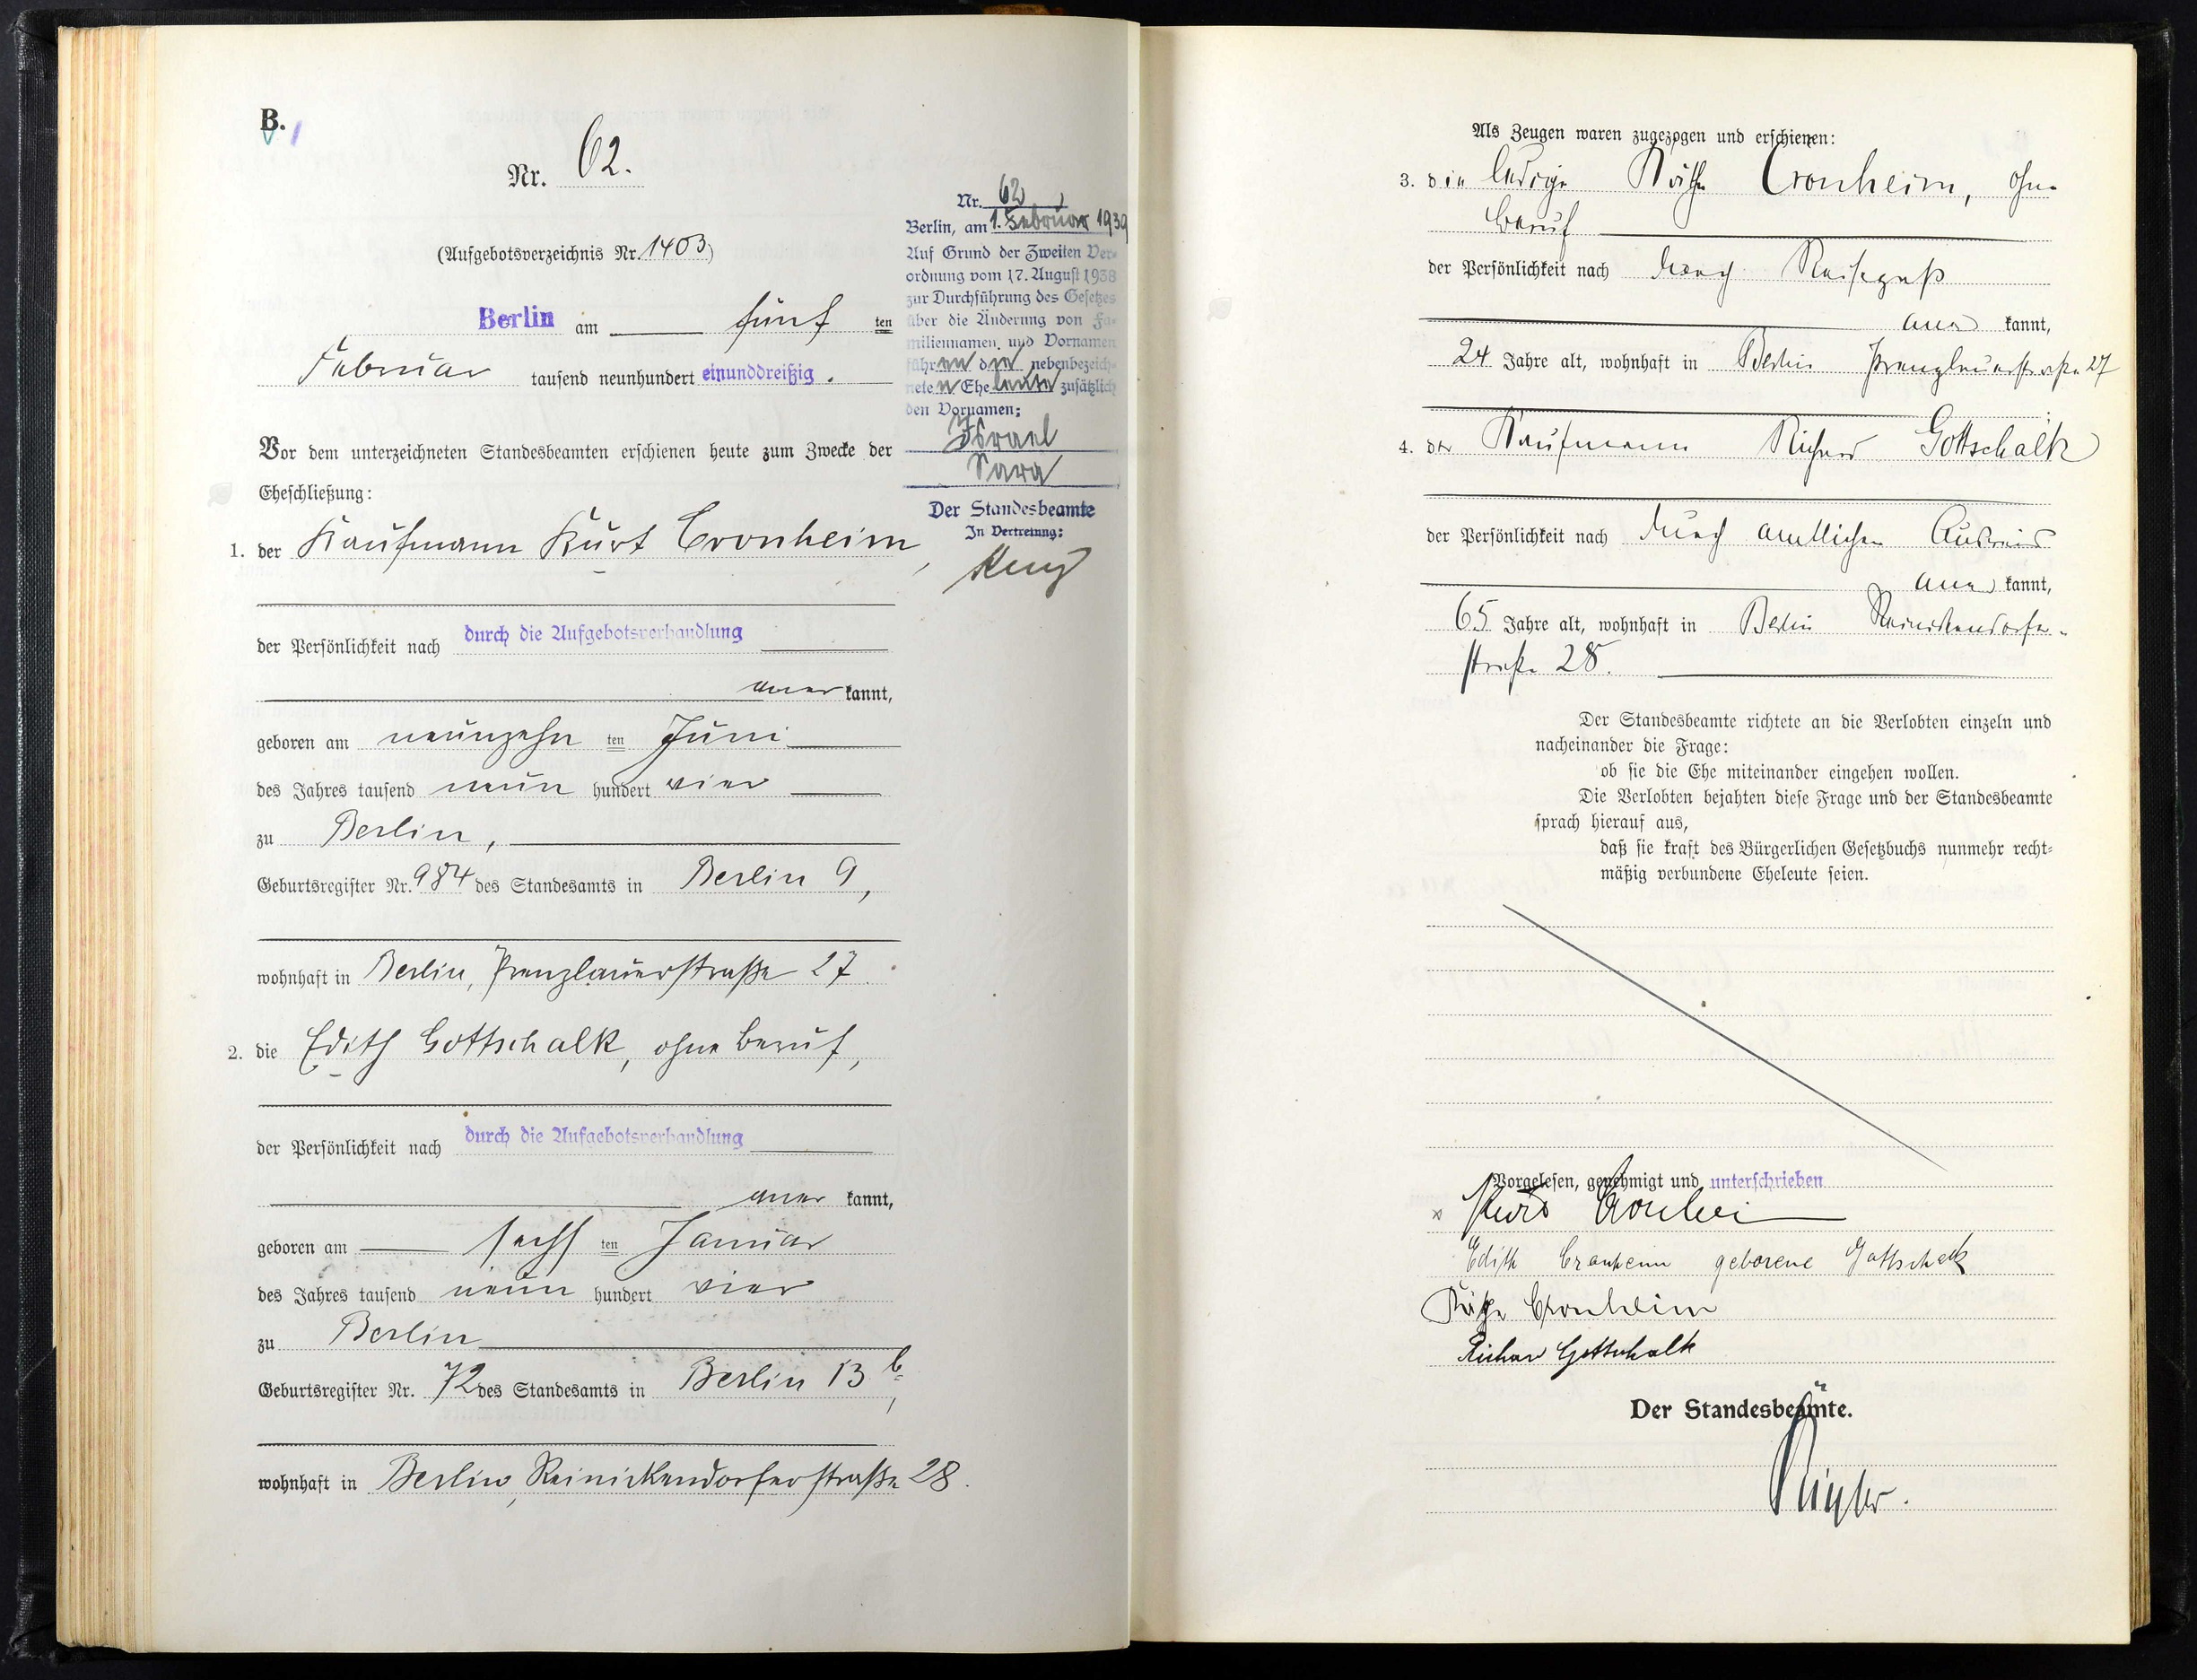 B.
Nr. 62.
(Aufgebotsverzeichnis Nr. 1403)
Berlin am fünf ten
Februar tausend neunhundert einunddreißig.
Vor dem unterzeichneten Standesbeamten erschienen heute zum Zwecke der
Eheschließung:
1. der Kaufmann Kurt Cronheim,
der Persönlichkeit nach durch die Aufgebotsverhandlung
aner kannt,
geboren am neunzehn ten Juni
des Jahres tausend neun hundert vier
zu Berlin,
Geburtsregister Nr. 984 des Standesamts in Berlin 9,
wohnhaft in Berlin, Prenzlauerstraße 27.
2. die Edith Gottschalk, ohne Beruf,
der Persönlichkeit nach durch die Aufgebotsverhandlung
aner kannt,
geboren am sechs ten Januar
des Jahres tausend neun hundert vier
zu Berlin
Geburtsregister Nr. 72 des Standesamts in Berlin 13 b,
wohnhaft in Berlin, Reinickendorferstraße 28.
Nr. 62
Berlin, am 1. Februar 1939
Auf Grund der Zweiten Ver-
ordnung vom 17. August 1938
zur Durchführung des Gesetzes
über die Änderung von Fa-
miliennamen und Vornamen
führen die nebenbezeich-
neten Eheleute zusätzlich
den Vornamen:
Israel
Sara
Der Standesbeamte
In Vertretung:
Als Zeugen waren zugezogen und erschienen:
3. die ledige Käthe Cronheim, ohne
Beruf
der Persönlichkeit nach durch Reisepaß
aner kannt,
24 Jahre alt, wohnhaft in Berlin Prenzlauerstraße 27
4. der Kaufmann Richard Gottschalk
der Persönlichkeit nach durch amtlichen Ausweis
aner kannt,
65 Jahre alt, wohnhaft in Berlin Reinickendorfer-
straße 28.
Der Standesbeamte richtete an die Verlobten einzeln und
nacheinander die Frage:
ob sie die Ehe miteinander eingehen wollen.
Die Verlobten bejahten diese Frage und der Standesbeamte
sprach hierauf aus,
daß sie kraft des Bürgerlichen Gesetzbuchs nunmehr recht-
mäßig verbundene Eheleute seien.
Vorgelesen, genehmigt und unterschrieben
Kurt Cronheim
Edith Cronheim geborene Gottschalk
Käthe Cronheim
Richard Gottschalk
Der Standesbeamte.